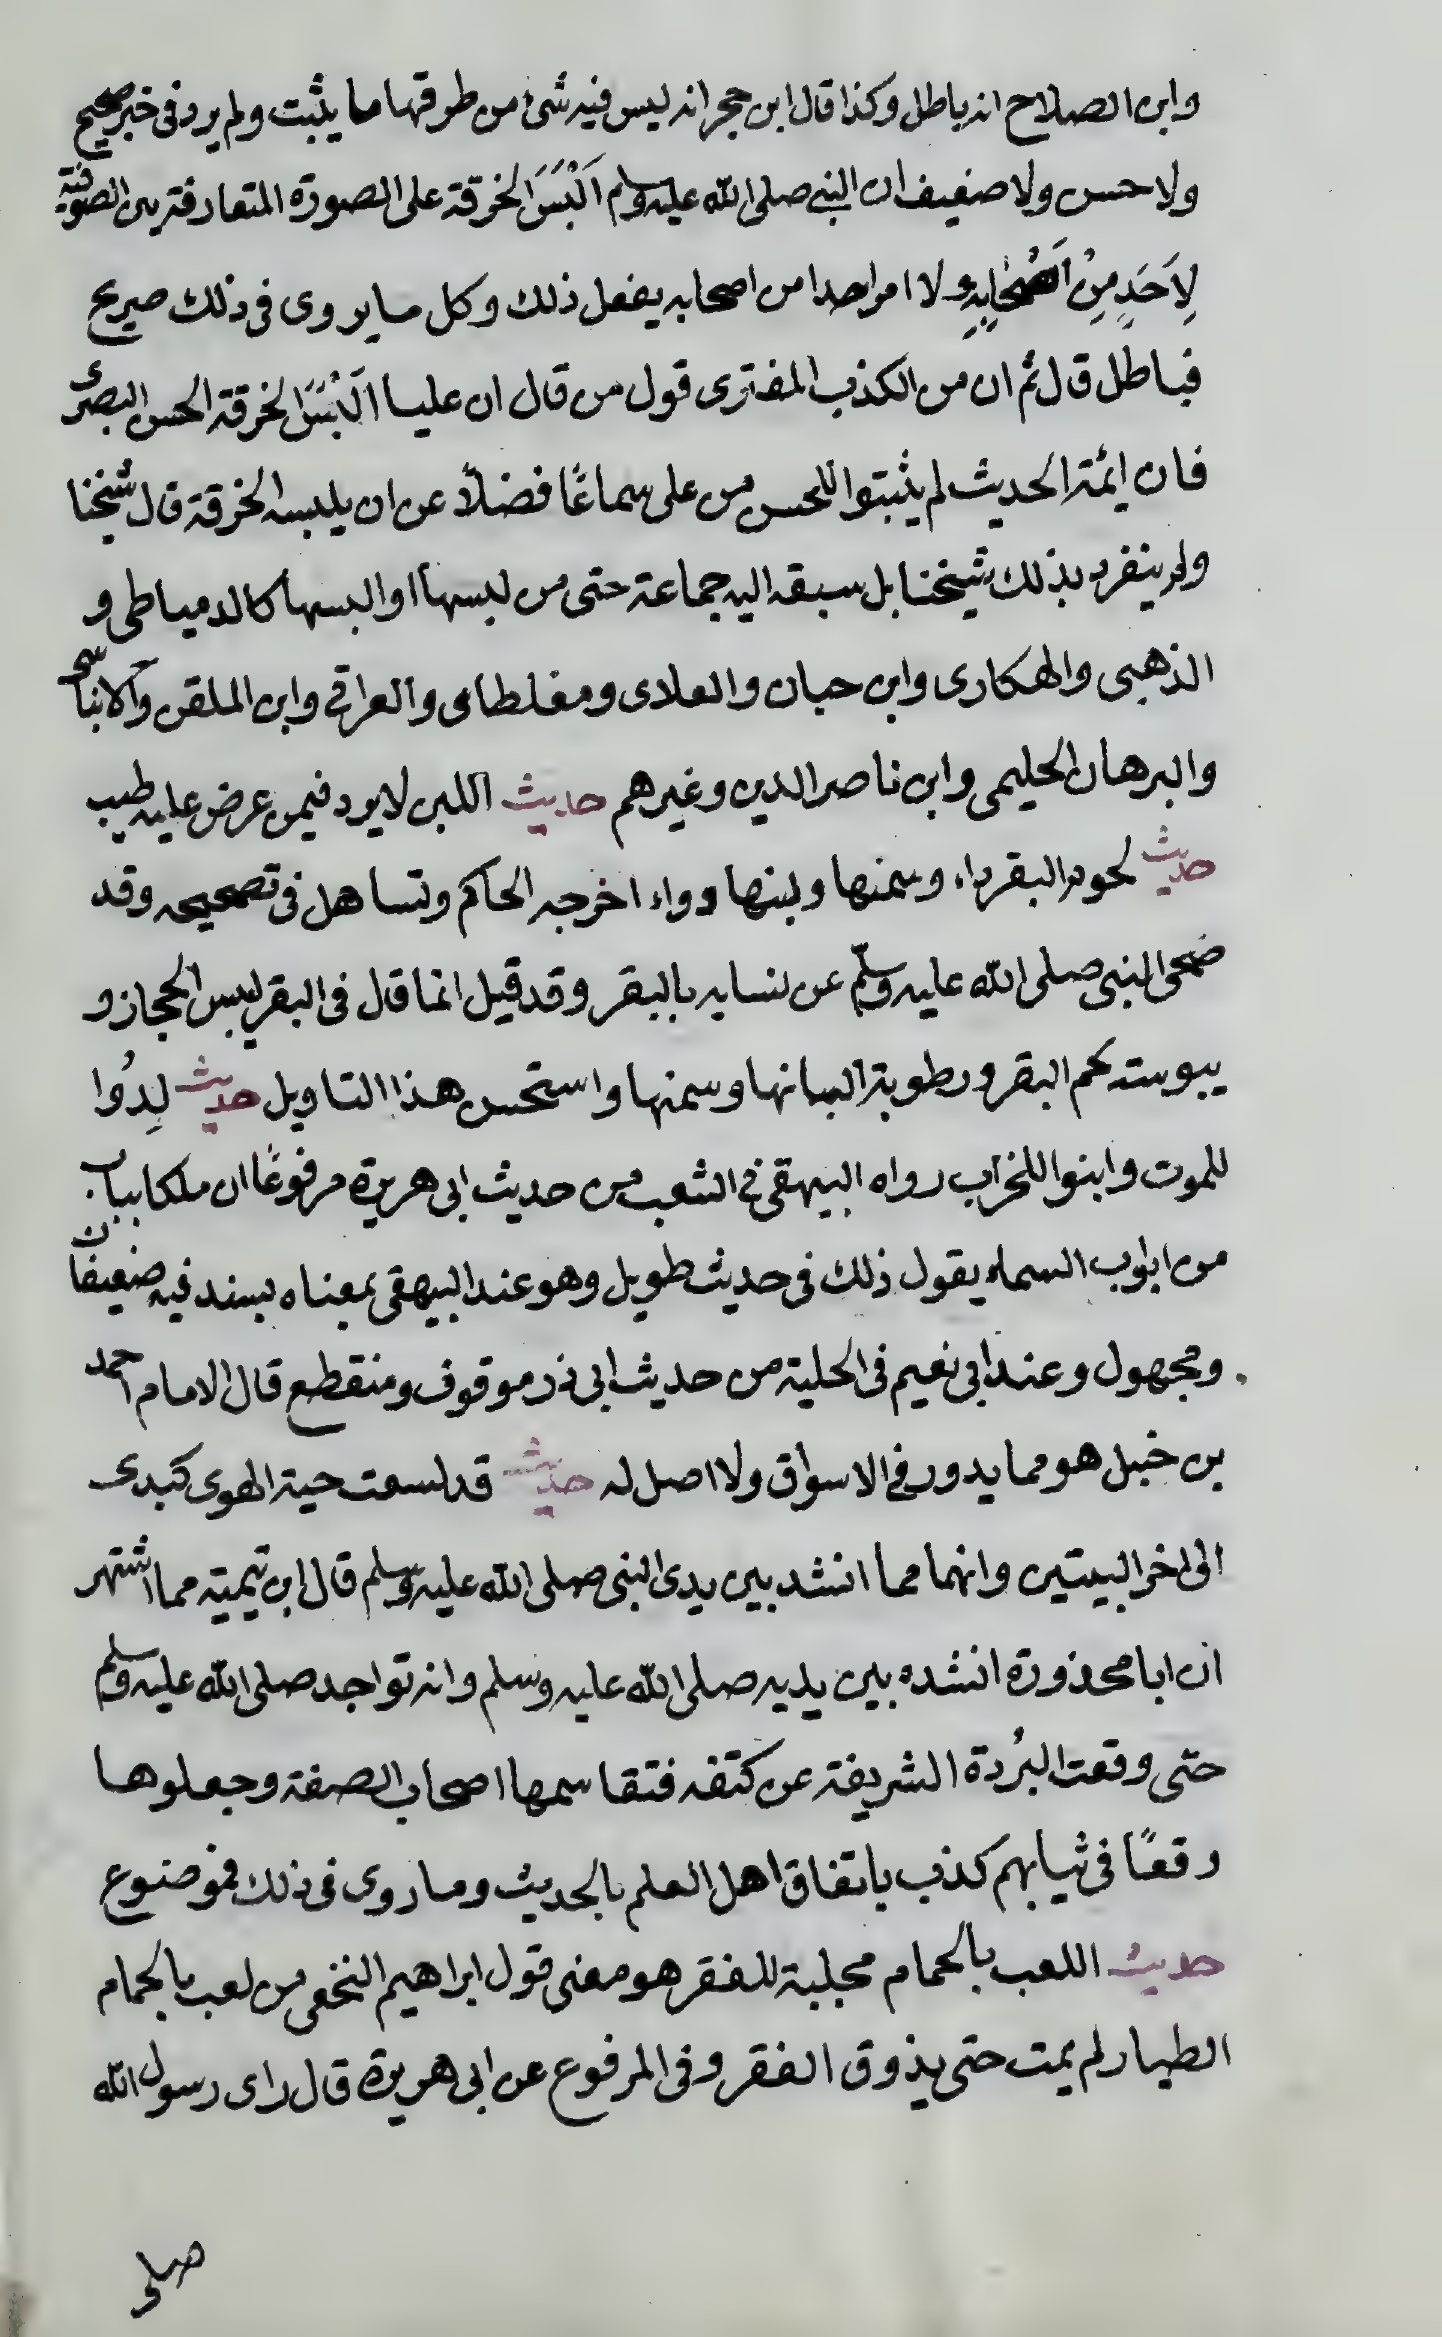 وابن الصلاح انه باطل وكذا قال ابن حجر انه ليس فيه شئ من طرقها مما يثبت ولم يرد في خبر صحيح
ولا حسن ولا ضعيف ان النبي صلى الله عليه وسلم اَلْبَسَ الخرقة على الصورة المتعارفة بين الصوفية
لِاَحَدٍ مِنْ اَصْحَابِهِ ولا امر احدا من اصحابه يفعل ذلك وكل ما يروى في ذلك صريح
فباطل قال ثم ان من الكذب المفترى قول من قال ان عليا اَلْبَسَ الخرقة الحسن البصرى
فان ائمة الحديث لم يثبتوا للحسن من على سماعًا فضلاً عن ان يلبسه الخرقة قال شيخنا
ولم ينفرد بذلك شيخنا بل سبقه اليه جماعة حتى من لبسها او البسها كالدمياطى و
الذهبى والهكارى وابن حبان والعلاى ومغلطاى والعراقى وابن الملقن والابناسى
والبرهان الحليمى وابن ناصر الدين وغيرهم حديث اللبن لا يرد فيمن عرض عليه طيب
حديث لحوم البقر داء وسمنها ولبنها دواء اخرجه الحاكم وتساهل في تصحيحه وقد
ضحى النبى صلى الله عليه وسلم عن نسايه بالبقر وقد قيل انما قال في البقر ليبس الحجاز و
يبوسته لحم البقر ورطوبة البانها وسمنها واستحسن هذا التاويل حديث لِدُوا
للموت وابنوا للخراب رواه البيهقى في الشعب من حديث ابى هريرة مرفوعًا ان ملكا بباب
من ابواب السماء يقول ذلك في حديث طويل وهو عند البيهقى بمعناه بسند فيه ضعيفان
ومجهول وعند ابى نعيم في الحلية من حديث ابى ذر موقوف ومنقطع قال الامام احمد
بن حنبل هو مما يدور في الاسواق ولا اصل له حديث قد لسعت حية الهوى كبدى
الى اخر البيتين وانهما مما انشد بين يدى النبى صلى الله عليه وسلم قال ابن تيمية مما اشتهر
ان ابا محذورة انشده بين يديه صلى الله عليه وسلم وانه تواجد صلى الله عليه وسلم
حتى وقعت البُردة الشريفة عن كتفه فتقاسمها اصحاب الصفة وجعلوها
رقعًا في ثيابهم كذب باتفاق اهل العلم بالحديث وما روى في ذلك فموضوع
حديث اللعب بالحمام مجلبة للفقر هو معنى قول ابراهيم النخعى من لعب بالحمام
الطيار لم يمت حتى يذوق الفقر وفى المرفوع عن ابى هريرة قال راى رسول الله
صلى